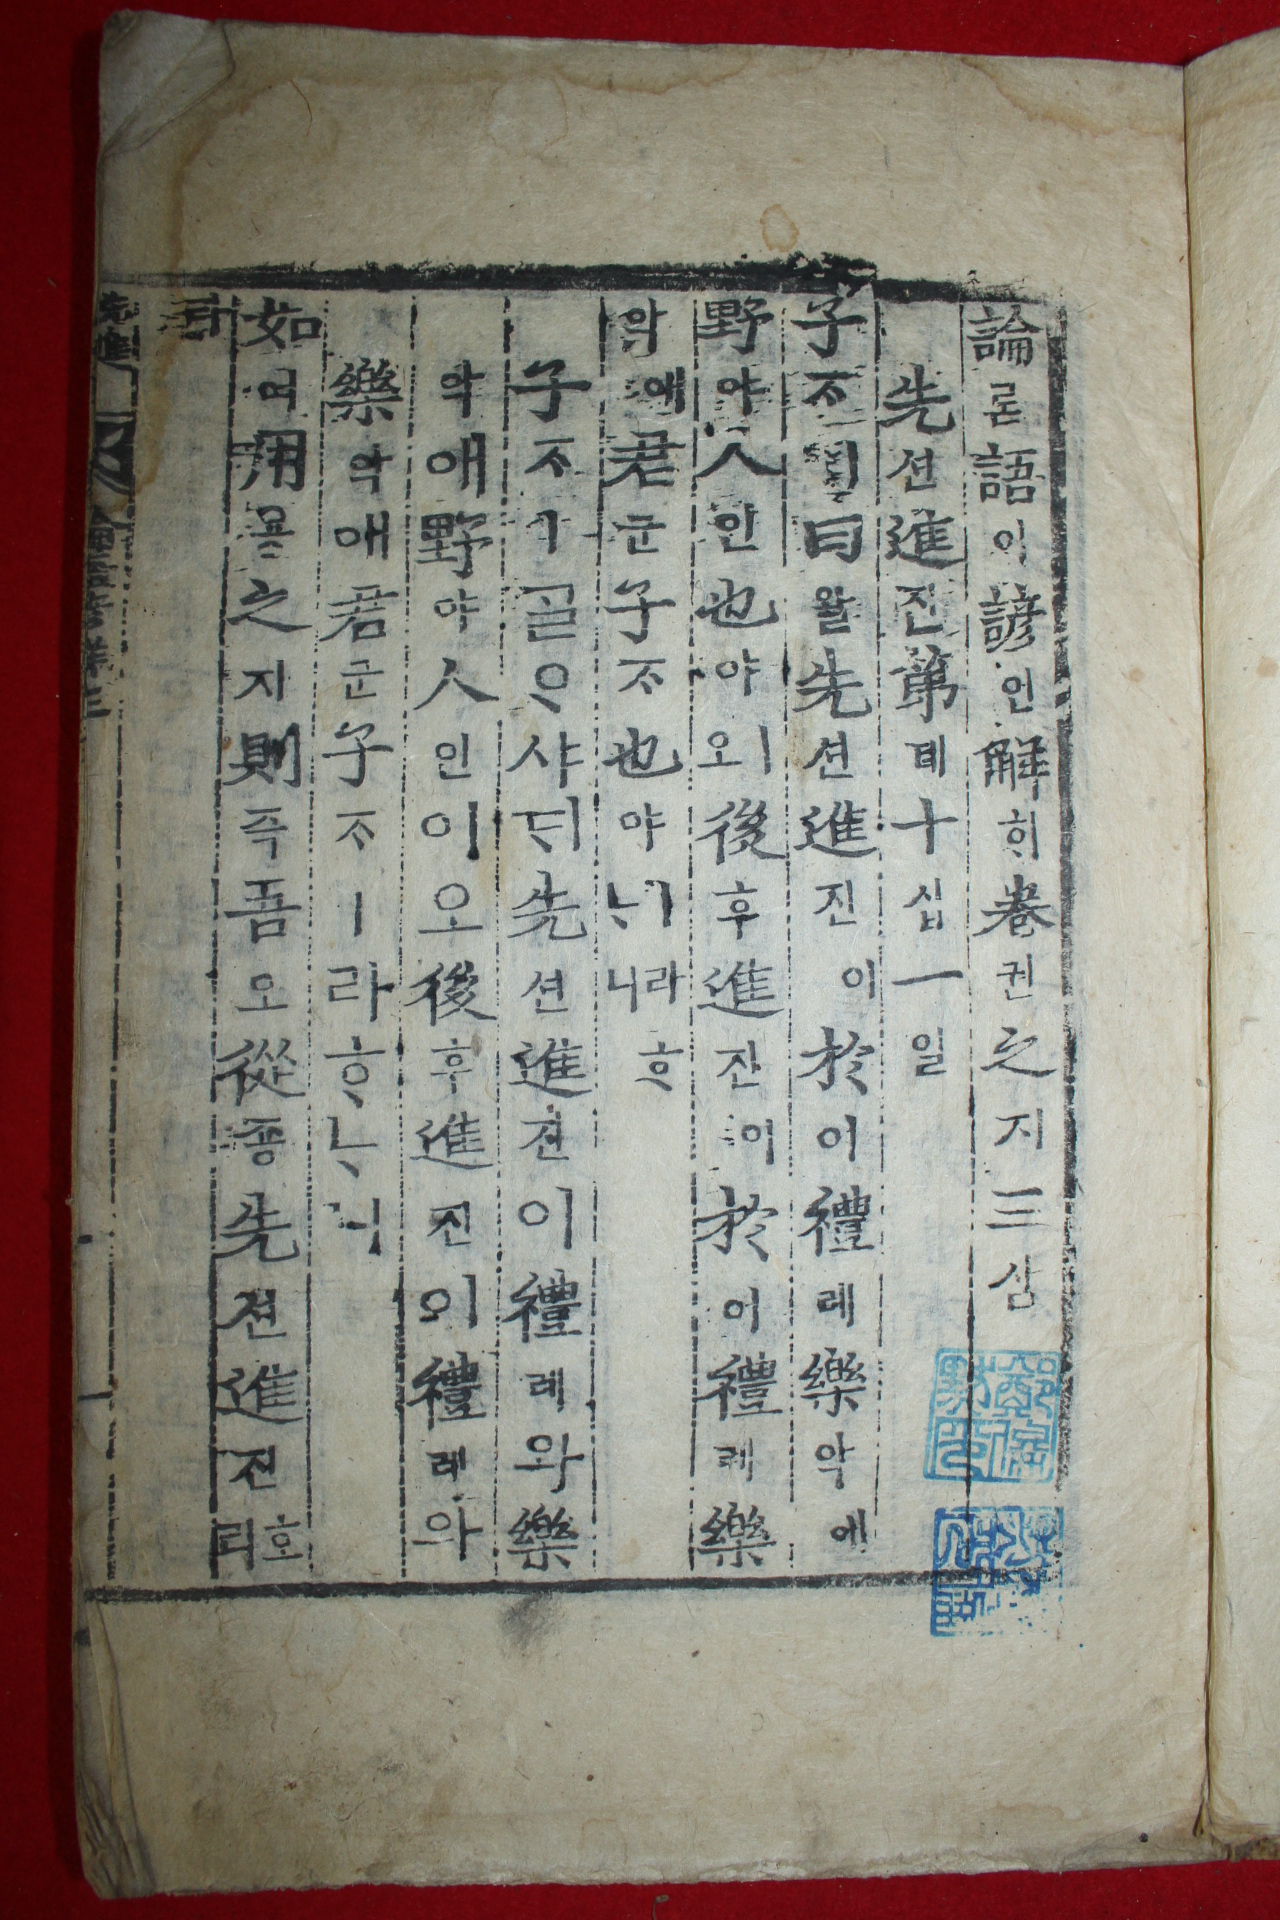 論론語어諺언解ᄒᆡ卷권之지三삼
先션進진第뎨十십一일
子ᄌᆞㅣ曰왈先션進진이於어禮례樂악애
野야人인也야ㅣ오後후進진이於어禮례樂
악애君군子ᄌᆞ也야ㅣ니라ᄒᆞᄂᆞ니
子ᄌᆞㅣᄀᆞᆯᄋᆞ샤ᄃᆡ先션進진이禮례와樂
악애野야人인이오後후進진이禮례와
樂악애君군子ᄌᆞㅣ라ᄒᆞᄂᆞ니
如여用용之지則즉吾오從죵先션進진호리
라
先進 論語諺解三 一